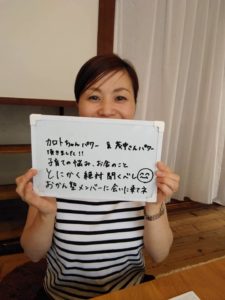 カロトちゃんパワー & 茂木さんパワー
頂きました!!
子育ての悩み、お金のこと
とにかく絶対聞くべし
おかん塾メンバーに会いに来てネ